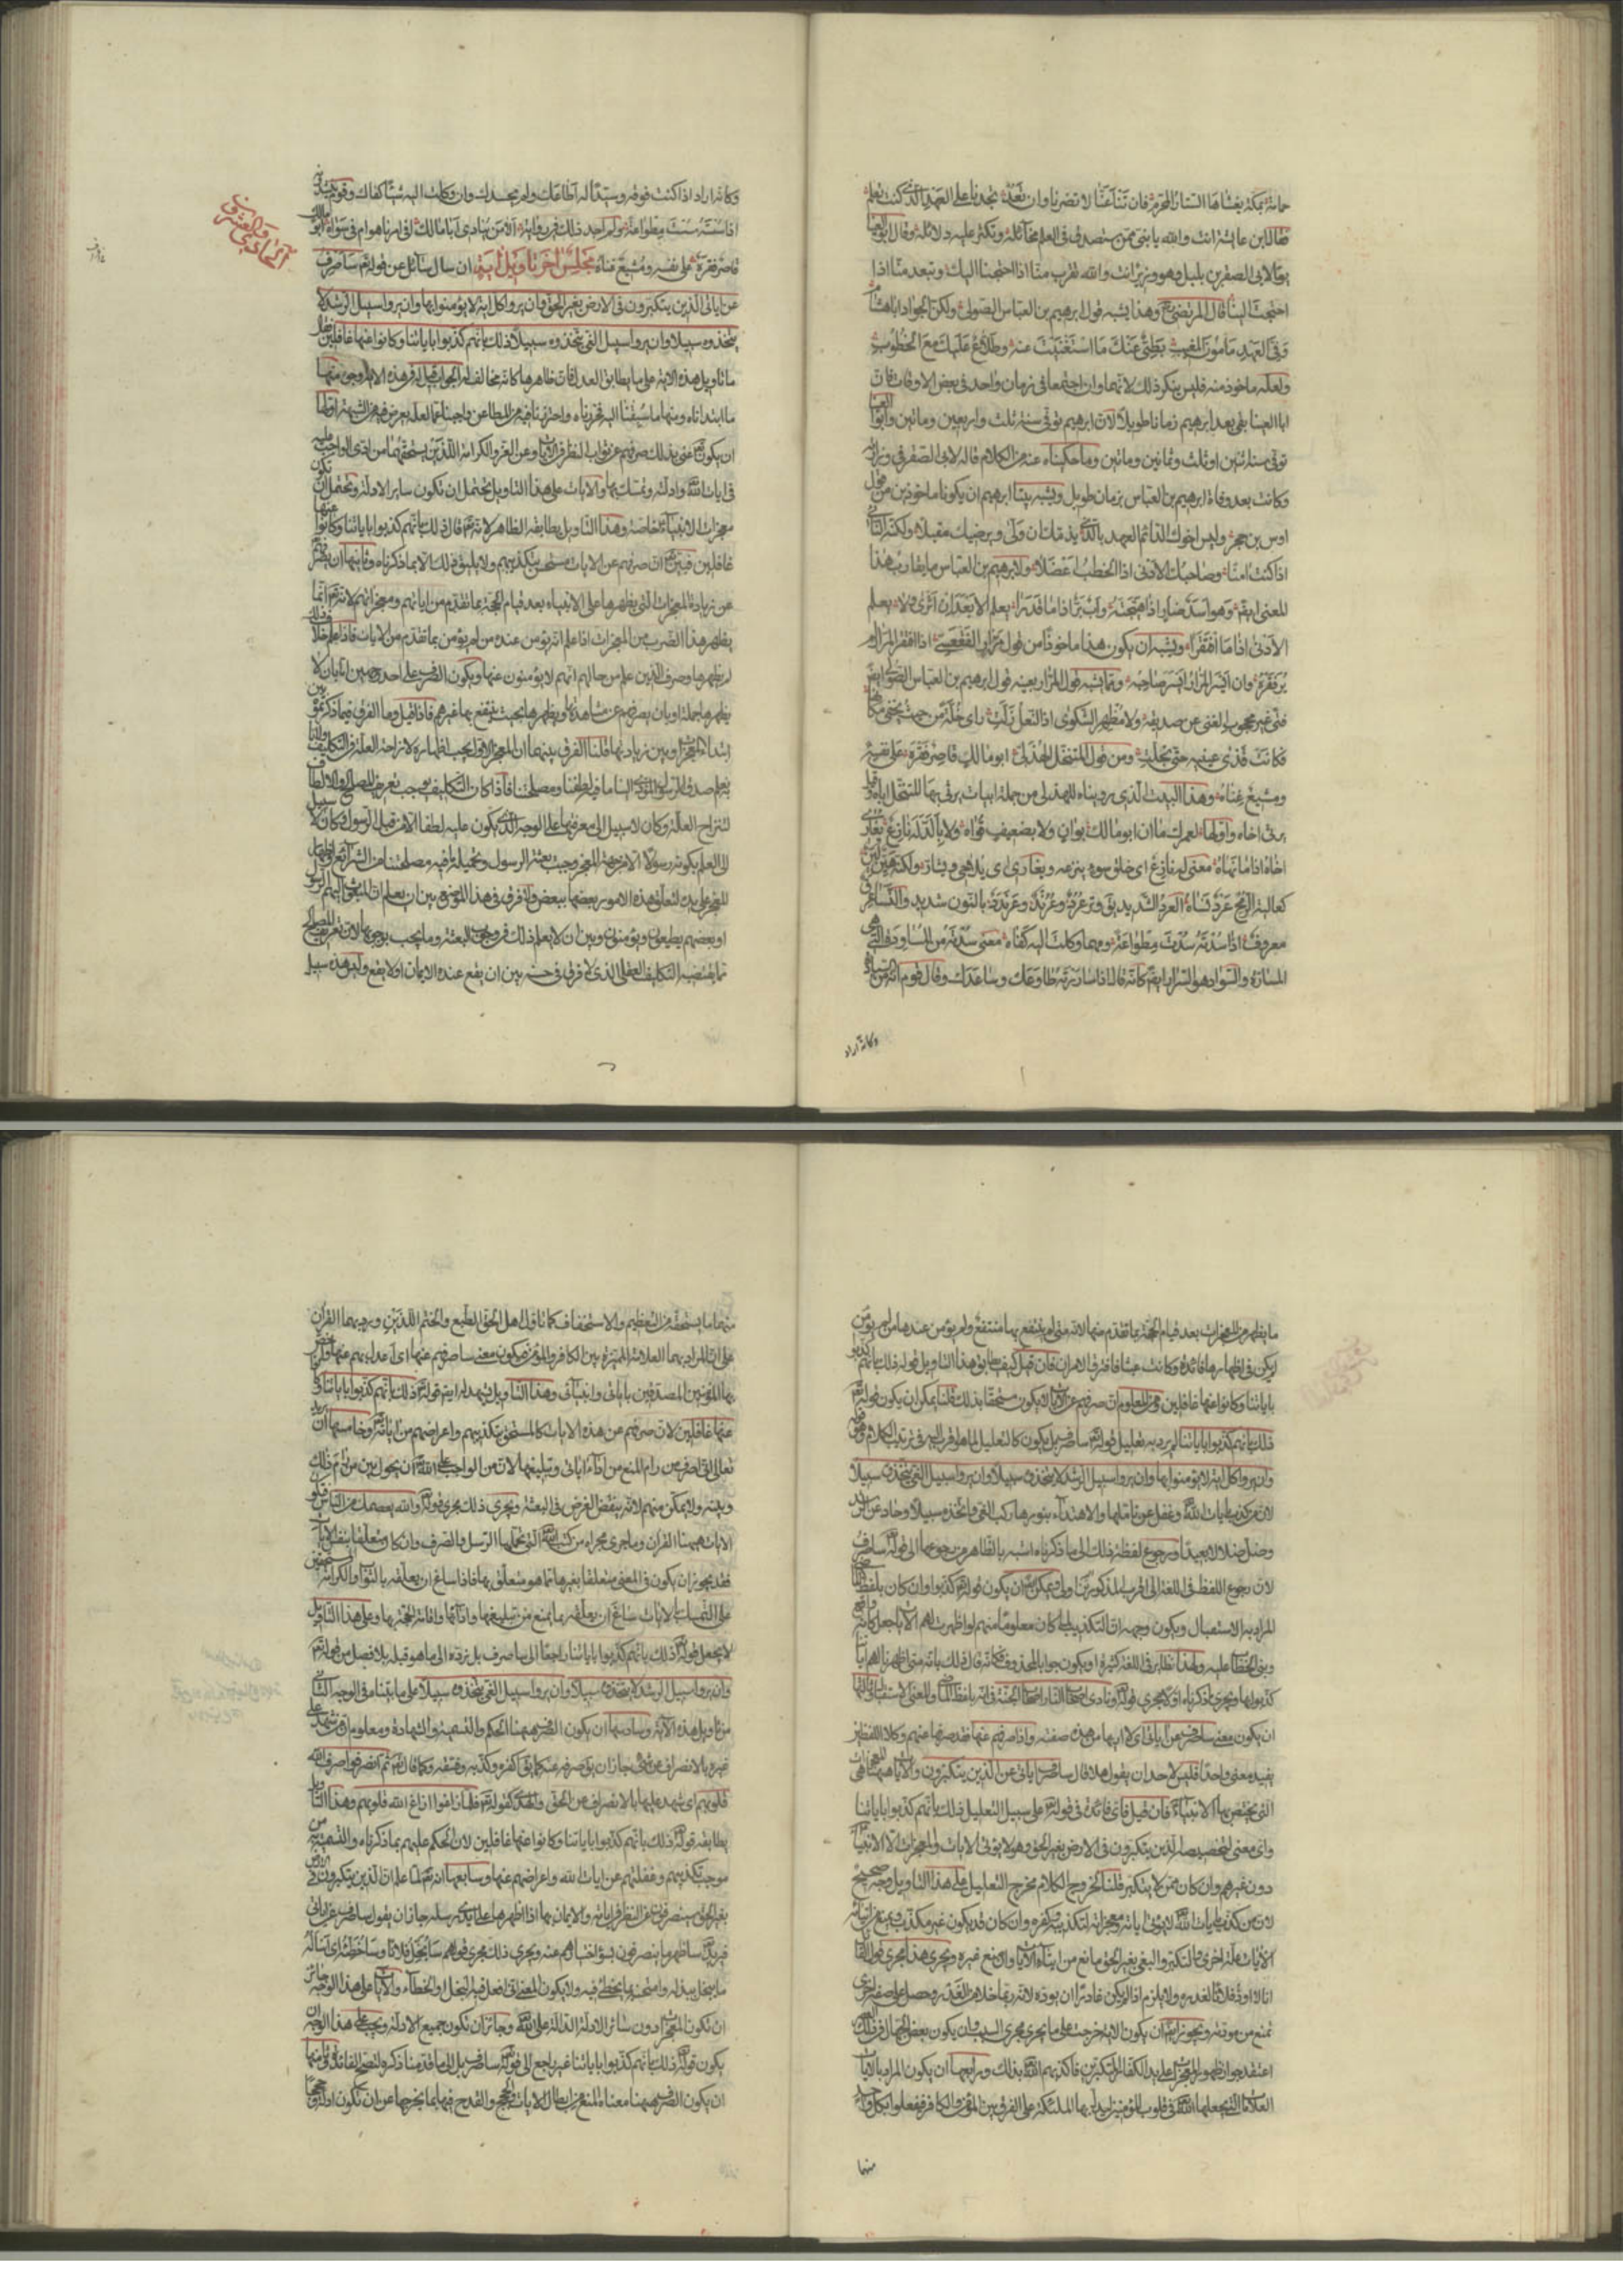 حمامة مكة يغشاها الستار المحرم فان تنا عنا لا تضرنا وان تعد تجدنا على العهد الذي كنت تعلم
فقال ابن عايشة انت والله يا بني ممن ستصدق في العلم مخائله وتكثر عليه دلائله وقال ابو العينا
يوما لابي الصقر بن بلبل وهو وزير انت والله تقرب منا اذا احتجنا اليك وتبعد منا اذا
احتجت الينا قال المرتضى وهذا يشبه قول ابرهيم بن العباس الصولي ولكن الجواد ابا هشام
وفي العهد مأمون المغيب بطئ عنك ما استغنيت عنه وطلاع عليك مع الخطوب
ولعله ماخوذ منه فليس ينكر ذلك لانهما وان اجتمعا في زمان واحد في بعض الاوقات فان
ابا العينا بقى بعد ابرهيم زمانا طويلا لان ابرهيم توفي سنة ثلث واربعين ومائتين وابو العينا
توفي سنة اثنين او ثلث وثمانين ومائتين وما حكيناه عنه من الكلام قاله لابي الصقر في وزارته
وكانت بعد وفاة ابرهيم بن العباس بزمان طويل ويشبه بيتا ابرهيم ان يكونا ماخوذين من قول
اوس بن حجر وليس اخوك الدائم العهد بالذي يذمك ان ولى ويرضيك مقبلا ولكنه النائي
اذا كنت امنا وصاحبك الادنى اذا الخطب اعضلا ولابرهيم بن العباس ما يقارب هذا
المعنى ايضا وهو اسد ضار اذا هيجته واب بر اذا ما قدرا يعلم الابعد ان اثرى ولا يعلم
الادنى اذا ما افتقرا ويشبه ان يكون هذا ماخوذا من قول مرار الفقعسي اذا افتقر المرار لم
ير فقره وان ايسر المرار ايسر صاحبه ومما يشبه قول المرار بعينه قول ابرهيم بن العباس الصولي ايضا
فتى غير محجوب الغنى عن صديقه ولا مظهر الشكوى اذا النعل زلت راى خلتي من حيث يخفى مكانها
فكانت قذى عينيه حتى تجلت ومن قول المتنخل الهذلي ابو مالك قاصر فقره على نفسه
ومشيع غناه وهذا البيت الذي رويناه للهذلي من جملة ابيات يرثى بها المتنخل اباه وقيل
يرثى اخاه واولها لعمرك ما ان ابو مالك بوان ولا بضعيف قواه ولا بالد له نازع يغارى
اخاه اذا ما نهاه معنى له نازع اى خلق سوء ينزعه ويغارى اى يلاحى ويشار ولكنه هين لين
كعالية الرمح عرد نساه العرد الشديد يق وتر عرد وعرند وعرندد بالنون شديد والنسا عرق
معروف اذا سدته سدت مطواعة ومهما وكلت اليه كفاه معنى سدته من السناود وهي
المسارة والسواد هو السرار ايضا كانه قال اذا ساررته طاوعك وساعدك وقال قوم انه من السيادة
وكانه اراد
وكانه اراد اذا كنت فوقه وسيدا له اطاعك ولم يحسدك وان وكلت اليه شيئا كفاك وقوم ينشدونه
اذا سسته سست مطواعة ولم اجد ذلك في رواية الا من ينادى ابا مالك افي امرنا هو ام في سواه ابو مالك
قاصر فقره على نفسه ومشيع غناه مجلس اخر تاويل اية ان سال سائل عن قوله تعالى ساصرف
عن اياتي الذين يتكبرون في الارض بغير الحق وان يروا كل اية لا يؤمنوا بها وان يروا سبيل الرشد لا
يتخذوه سبيلا وان يروا سبيل الغي يتخذوه سبيلا ذلك بانهم كذبوا باياتنا وكانوا عنها غافلين فقال
ما تاويل هذه الاية على ما يطابق العدل فان ظاهرها كانه مخالف له الجواب قيل له في هذه الاية وجوه منها
ما ابتدأناه ومنها ما سبقنا اليه فحررناه واحترزنا فيه من المطاعن واجبنا عما لعله يعرض فيه من الشبهة اولها
ان يكون تعالى عنى بذلك صرفهم عن ثواب النظر في الايات وعن العز والكرامة اللذين يستحقهما من ادى الواجب عليه
في ايات الله وادلته وتمسك بها والايات على هذا التاويل تحتمل ان تكون ساير الادلة وتحتمل ان تكون
معجزات الانبياء خاصة وهذا التاويل يطابقه الظاهر لانه تعالى قال ذلك بانهم كذبوا باياتنا وكانوا عنها
غافلين فبين تعالى ان صرفهم عن الايات مستحق بتكذيبهم ولا يليق ذلك الا بما ذكرناه وثانيها ان يصرفهم
عن زيادة المعجزات التي يظهرها على الانبياء بعد قيام الحجة بما تقدم من اياتهم ومعجزاتهم لانه تعالى انما
يظهر هذا الضرب من المعجزات اذا علم انه يؤمن عنده من لم يؤمن بما تقدم من الايات فاذا علم خلاف ذلك
لم يظهرها وصرف الذين علم من حالهم انهم لا يؤمنون عنها ويكون الصرف على احد وجهين اما بان لا
يظهرها جملة او بان يصرفهم عن مشاهدتها ويظهرها بحيث ينتفع بها غيرهم فاذا قيل وما الفرق فيما ذكرتموه بين
ابتداء المعجزات وبين زيادتها قلنا الفرق بينهما ان المعجز الاول يجب اظهاره لازاحة العلة في التكليف ولانا به
نعلم صدق الرسول المؤدى الينا ما فيه لطفنا ومصلحتنا فاذا كان التكليف يوجب تعريف المصالح والالطاف
لتنزاح العلة وكان لا سبيل الى معرفتها على الوجه الذي يكون عليه لطفا الا من قبل الرسول وكان لا سبيل
الى العلم بكونه رسولا الا من جهة المعجز وجبت بعثة الرسول وتحميله ما فيه مصلحتنا من الشرائع واظهار
المعجز على يده لتعلق هذه الامور بعضها ببعض ولا فرق في هذا الموضع بين ان يعلم ان المبعوث اليهم الرسول
او بعضهم يطيعون ويؤمنون وبين ان لا يعلم ذلك في وجوب البعثة وما يجب بوجوبها لان تعريف المصالح
مما يقتضيه التكليف العقلي الذي لا فرق في حسنه بين ان يقع عنده الايمان او لا يقع وليس هذه سبيل
ما يظهر من المعجزات بعد قيام الحجة بما تقدم منها لانه متى لم ينتفع بها منتفع ولم يؤمن عندها من لم يؤمن
لم يكن في اظهارها فائدة وكانت عبثا فافترق الامران فان قيل كيف يطابق هذا التاويل قوله ذلك بانهم كذبوا
باياتنا وكانوا عنها غافلين ومن المعلوم ان صرفهم عن الايات لا يكون مستحقا بذلك قلنا يمكن ان يكون قوله تعالى
ذلك بانهم كذبوا باياتنا لم يرد به تعليل قوله تعالى ساصرف بل يكون كالتعليل لما هو اقرب اليه في ترتيب الكلام وهو قوله
وان يروا كل اية لا يؤمنوا بها وان يروا سبيل الرشد لا يتخذوه سبيلا وان يروا سبيل الغي يتخذوه سبيلا
لان من كذب بايات الله وغفل عن تاملها والاهتداء بنورها ركب الغي واتخذه سبيلا وحاد عن الرشد
وضل ضلالا بعيدا ورجوع لفظة ذلك الى ما ذكرناه اشبه بالظاهر من رجوعها الى قوله ساصرف
لان رجوع اللفظ في اللغة الى اقرب المذكورين اولى ويمكن ان يكون قوله تعالى كذبوا وان كان بلفظ الماضي
المراد به الاستقبال ويكون وجهه ان التكذيب لما كان معلوما منهم لو اظهرت لهم الايات جعل كانه واقع
وبنى الخطاب عليه ولهذا نظاير في اللغة كثيرة او يكون جوابا لمحذوف كانه قال ذلك بانه متى اظهرنا لهم اياتنا
كذبوا بها ويجرى ما ذكرناه اولا مجرى قوله ونادى اصحاب النار اصحاب الجنة في انه بلفظ الماضي والمعنى الاستقبال وثالثها
ان يكون معنى ساصرف عن اياتي اى لا اتيها من هذه صفته واذا صرفهم عنها فقد صرفها عنهم وكلا اللفظين
يفيد معنى واحدا فليس لاحد ان يقول هلا قال ساصرف اياتي عن الذين يتكبرون والايات ههنا هي المعجزات
التي يختص بها الانبياء فان قيل فاى فائدة في قوله على سبيل التعليل ذلك بانهم كذبوا باياتنا
واى معنى لتخصيصه الذين يتكبرون في الارض بغير الحق وهو لا يؤتى الايات والمعجزات الا الانبياء
دون غيرهم وان كان ممن لا يتكبر قلنا لخروج الكلام مخرج التعليل على هذا التاويل وجه صحيح
لان من كذب بايات الله لا يؤتى اياته ومعجزاته لتكذيبه وكفره وان كان قد يكون غير مكذب ويمنع من اتيانه
الايات علة اخرى والتكبر والبغي بغير الحق مانع من ايتاء الايات وان منع غيره ويجرى هذا مجرى قول القائل
انا لا اود فلانا لغدره ولا يلزم اذا لم يكن غادرا ان يوده لانه ربما خلا من الغدر وحصل على صفة اخرى
تمنع من مودته ويجوز ايضا ان يكون الاية خرجت على ما يجرى مجرى السبب وان يكون بعض الجهال في ذلك
اعتقد جواز ظهور المعجزات على يد الكفار المتكبرين فاكذبهم الله بذلك ورابعها ان يكون المراد بالايات
العلامات التي يجعلها الله في قلوب المؤمنين ليدل بها الملئكة على الفرق بين المؤمن والكافر فيفعلوا بكل واحد
منهما
منهما ما يستحقه من التعظيم والاستخفاف كما تاول اهل الحق الطبع والختم اللذين ورد بهما القران
على ان المراد بهما العلامة المميزة بين الكافر والمؤمن ويكون معنى ساصرفهم عنها اى اعدل بهم عنها واخص
بها المؤمنين المصدقين باياتي وانبيائي وهذا التاويل يشهد له ايضا قوله تعالى ذلك بانهم كذبوا باياتنا وكانوا
عنها غافلين لان صرفهم عن هذه الايات كالمستحق بتكذيبهم واعراضهم عن اياته تعالى وخامسها ان يريد
تعالى انى اصرف من رام المنع من اداء اياتي وتبليغها لان من الواجب على الله ان يحول بين من رام ذلك
وبينه ولا يمكن منهم لانه ينقض الغرض في البعثة ويجرى ذلك مجرى قوله والله يعصمك من الناس فتكون
الايات ههنا القران وما جرى مجراه من كتب الله التي تحملها الرسل والصرف وان كان متعلقا بنفس الايات
فقد يجوز ان يكون في المعنى متعلقا بغيرها مما هو متعلق بها فاذا ساغ ان يعلقه بالثواب والكرامة المستحقين
على التمسك بالايات ساغ ان يعلقه بما يمنع من تبليغها وادائها واقامة الحجة بها وعلى هذا التاويل
لا يجعل قوله ذلك بانهم كذبوا باياتنا راجعا الى ساصرف بل نرده الى ما هو قبله بلا فصل من قوله تعالى
وان يروا سبيل الرشد لا يتخذوه سبيلا وان يروا سبيل الغي يتخذوه سبيلا على ما بيناه في الوجه الثاني
من تاويل هذه الاية وسادسها ان يكون الصرف ههنا الحكم والتسمية والشهادة ومعلوم ان من شهد على
غيره بالانصراف عن شئ جاز ان يق صرفه عنه كما يق اكفره وكذبه وفسقه وكما قال الله تعالى ثم انصرفوا صرف الله
قلوبهم اى شهد عليها بالانصراف عن الحق وكقوله تعالى فلما زاغوا ازاغ الله قلوبهم وهذا التاويل
يطابقه قوله ذلك بانهم كذبوا باياتنا وكانوا عنها غافلين لان الحكم عليهم بما ذكرناه والتسمية
موجب تكذيبهم وغفلتهم عن ايات الله واعراضهم عنها وسابعها انه تعالى لما علم ان الذين يتكبرون في الارض
بغير الحق سينصرفون عن النظر في اياته والايمان بها اذا اظهرها على ايدى رسله جاز ان يقول ساصرف عن اياتي
فيريد ساظهر ما ينصرفون بسوء اختيارهم عنه ويجرى ذلك مجرى قولهم سابخل فلانا وساخطئه اى اساله
ما يبخل ببذله وامتحنه بما يخطئ فيه ولا يكون المعنى انى افعل فيه البخل او الخطاء والايات على هذا الوجه جائز
ان تكون المعجزات دون سائر الادلة الدالة على الله وجائز ان تكون جميع الادلة ويجب على هذا الوجه ان
يكون قوله ذلك بانهم كذبوا باياتنا غير راجع الى قوله ساصرف بل الى ما قدمنا ذكره لتصح الفائدة وثامنها
ان يكون الصرف ههنا معناه المنع من ابطال الايات والحجج والقدح فيها بما يخرجها عن ان تكون ادلة وحججا